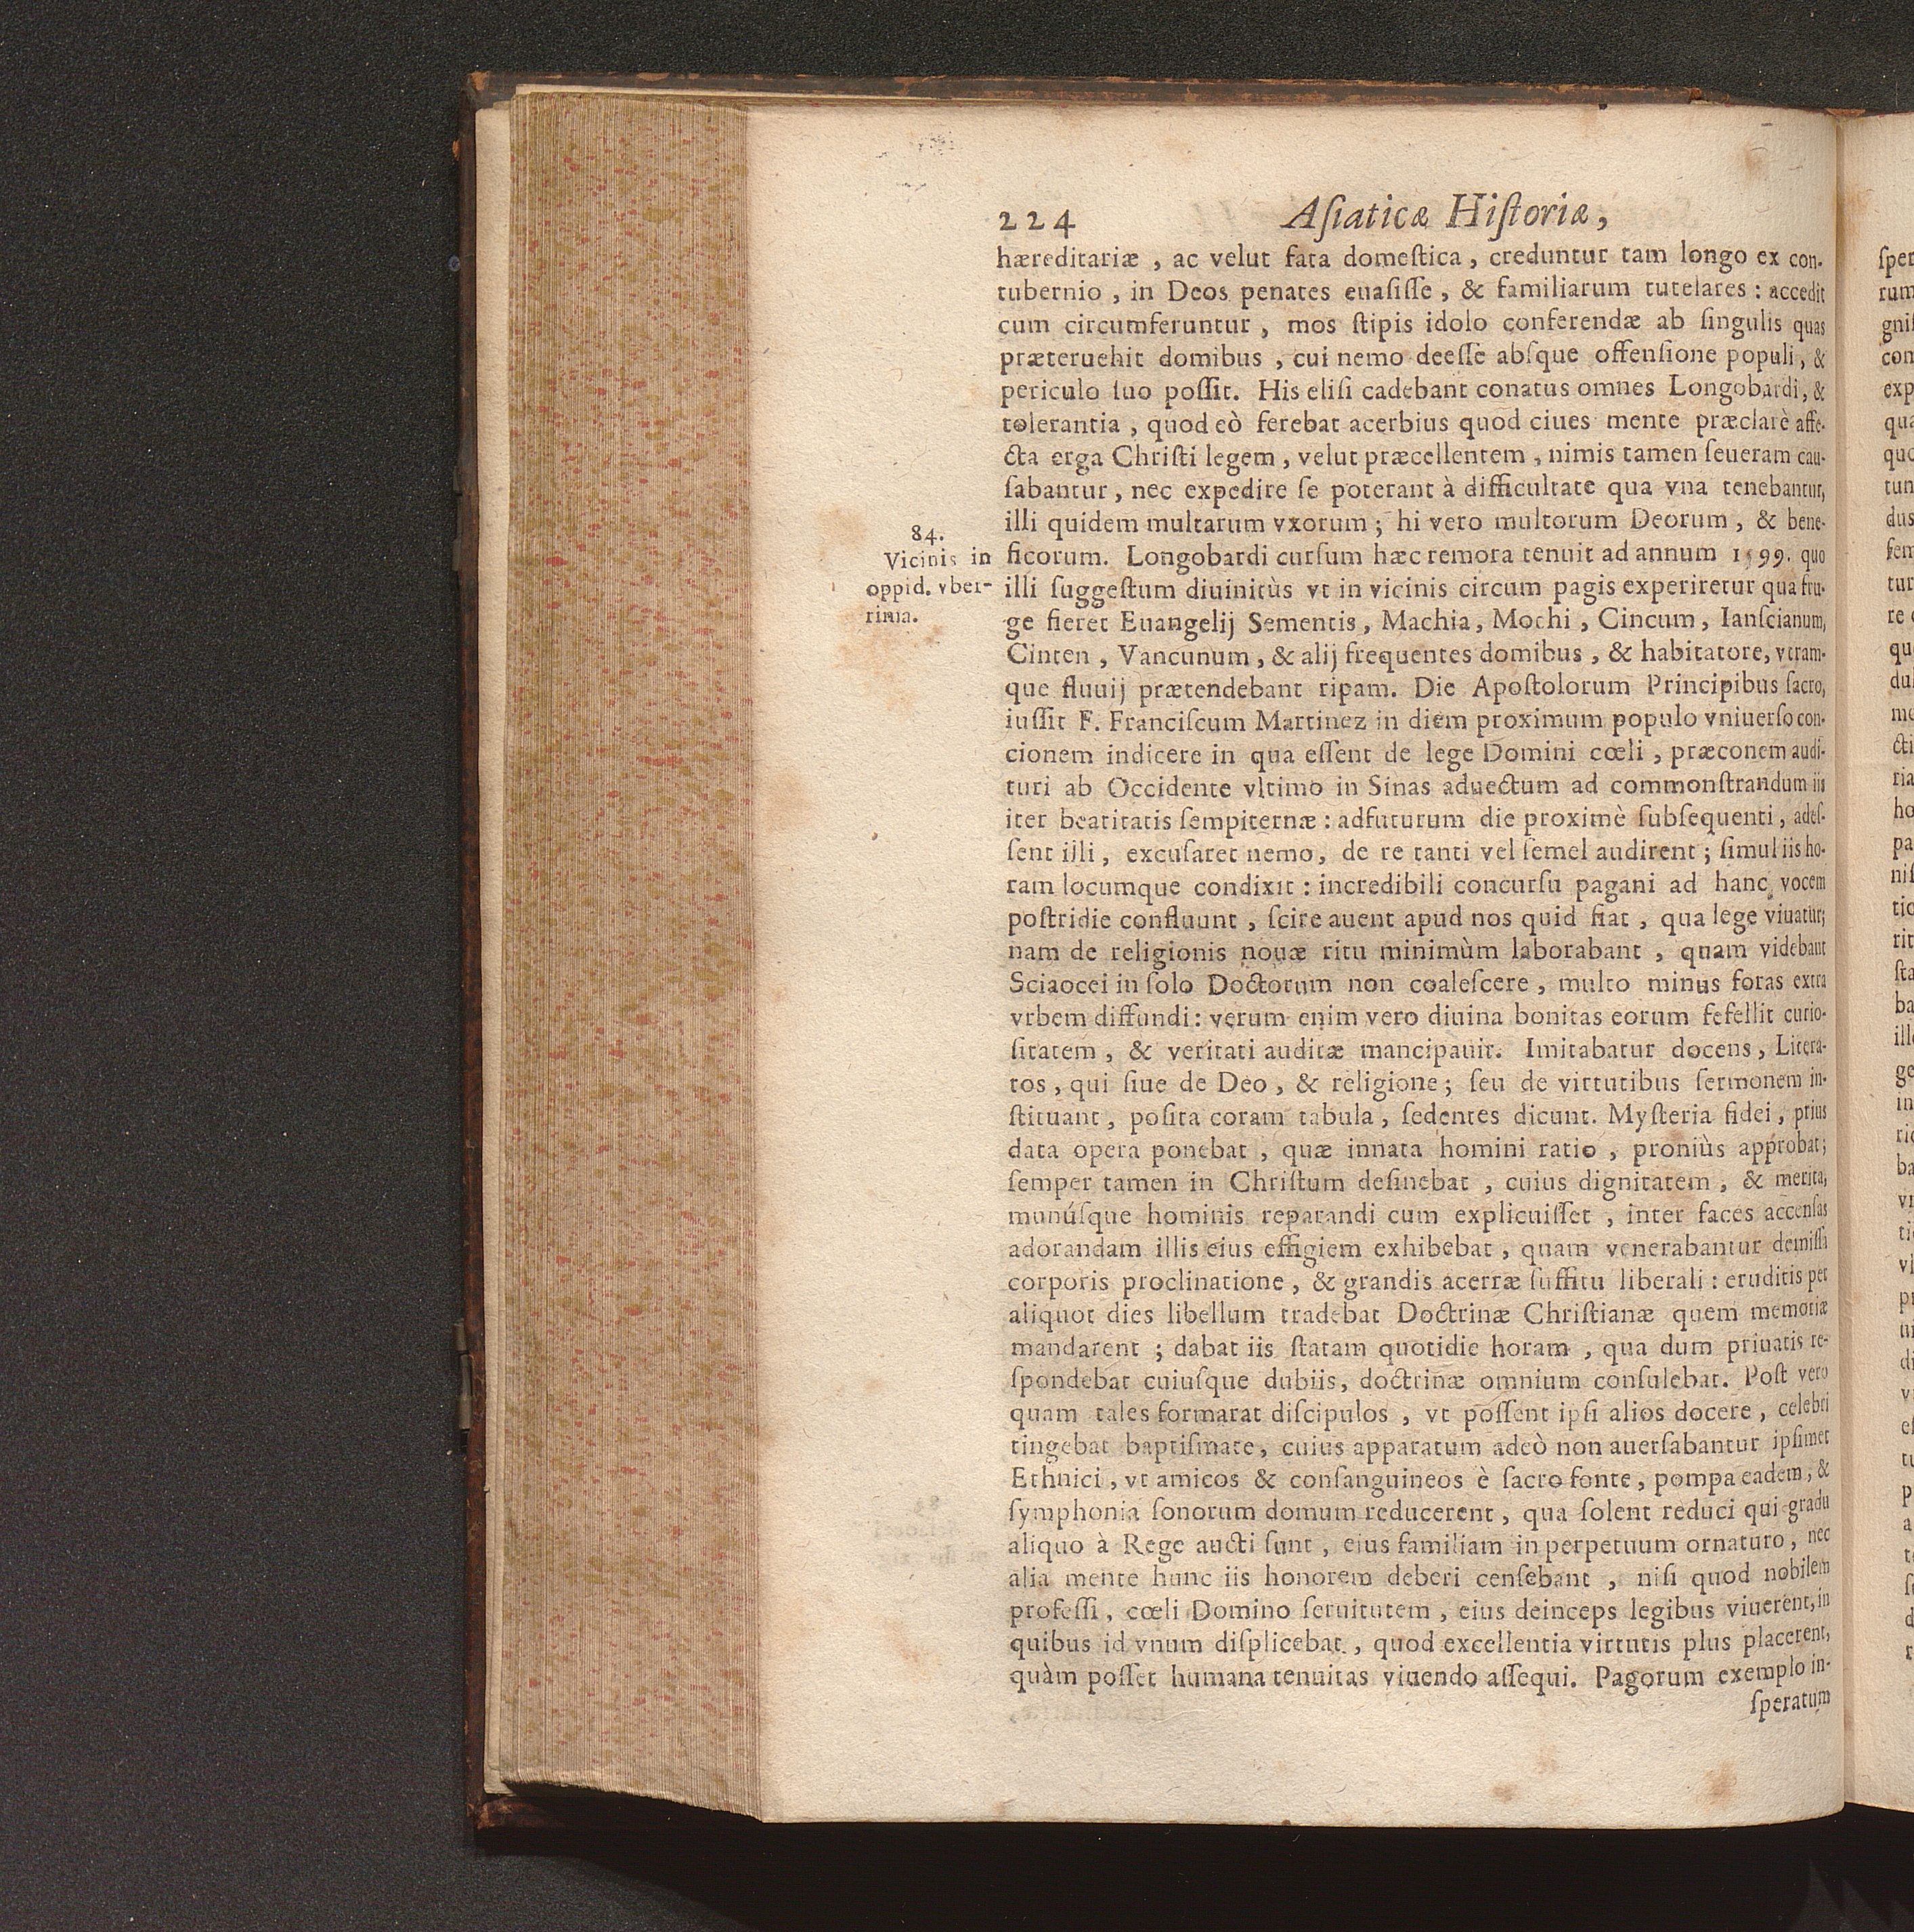 224 Aſiaticæ Hiſtoriæ,
hæreditariæ , ac velut fata domeſtica , creduntur tam longo ex con-
tubernio , in Deos penates euaſiſſe , & familiarum tutelares : accedit
cum circumferuntur , mos ſtipis idolo conferendæ ab ſingulis quas
præteruehit domibus , cui nemo deeſſe abſque offenſione populi , &
periculo ſuo poſſit. His eliſi cadebant conatus omnes Longobardi, &
tolerantia , quod eò ferebat acerbius quod ciues mente præclarè affe-
cta erga Chriſti legem , velut præcellentem , nimis tamen ſeueram cau-
ſabantur , nec expedire ſe poterant à difficultate qua vna tenebantur,
illi quidem multarum vxorum ; hi vero multorum Deorum , & bene-
84.
Vicinis in
oppid. vber-
rima.
ficorum. Longobardi curſum hæc remora tenuit ad annum 1599. quo
illi ſuggeſtum diuinitùs vt in vicinis circum pagis experiretur qua fru-
ge fieret Euangelij Sementis , Machia , Mochi , Cincum , Ianſcianum,
Cinten , Vancunum , & alij frequentes domibus , & habitatore, vtram-
que fluuij prætendebant ripam. Die Apoſtolorum Principibus ſacro,
iuſſit F. Franciſcum Martinez in diem proximum populo vniuerſo con-
cionem indicere in qua eſſent de lege Domini cœli , præconem audi-
turi ab Occidente vltimo in Sinas aduectum ad commonſtrandum iis
iter beatitatis ſempiternæ : adfuturum die proximè ſubſequenti , adeſ-
ſent illi , excuſaret nemo, de re tanti vel ſemel audirent ; ſimul iis ho-
ram locumque condixit : incredibili concurſu pagani ad hanc vocem
poſtridie confluunt , ſcire auent apud nos quid fiat , qua lege viuatur;
nam de religionis nouæ ritu minimùm laborabant , quam videbant
Sciaocei in ſolo Doctorum non coaleſcere , multo minus foras extra
vrbem diffundi : verum enim vero diuina bonitas eorum fefellit curio-
ſitatem , & veritati auditæ mancipauit. Imitabatur docens , Litera-
tos , qui ſiue de Deo , & religione ; ſeu de virtutibus ſermonem in-
ſtituant , poſita coram tabula , ſedentes dicunt. Myſteria fidei , prius
data opera ponebat , quæ innata homini ratio , proniùs approbat;
ſemper tamen in Chriſtum deſinebat , cuius dignitatem , & merita,
munúſque hominis reparandi cum explicuiſſet , inter faces accenſas
adorandam illis eius effigiem exhibebat , quam venerabantur demiſſi
corporis proclinatione , & grandis acerræ ſuffitu liberali : eruditis per
aliquot dies libellum tradebat Doctrinæ Chriſtianæ quem memoriæ
mandarent ; dabat iis ſtatam quotidie horam , qua dum priuatis re-
ſpondebat cuiuſque dubiis, doctrinæ omnium conſulebat. Poſt vero
quam tales formarat diſcipulos , vt poſſent ipſi alios docere , celebri
tingebat baptiſmate, cuius apparatum adeò non auerſabantur ipſimet
Ethnici , vt amicos & conſanguineos è ſacro fonte , pompa eadem , &
ſymphonia ſonorum domum reducerent , qua ſolent reduci qui gradu
aliquo à Rege aucti ſunt , eius familiam in perpetuum ornaturo , nec
alia mente hunc iis honorem deberi cenſebant , niſi quod nobilem
profeſſi , cœli Domino ſeruitutem , eius deinceps legibus viuerent, in
quibus id vnum diſplicebat , quod excellentia virtutis plus placerent,
quàm poſſet humana tenuitas viuendo aſſequi. Pagorum exemplo in-
ſperatum